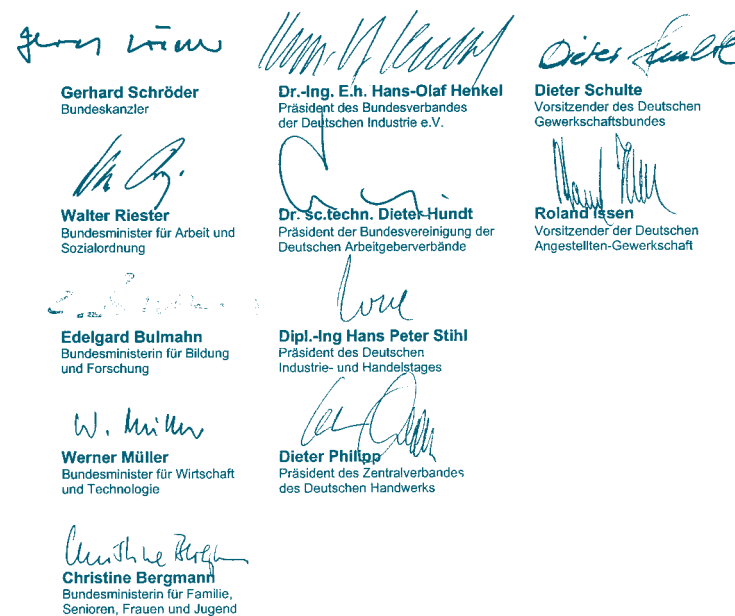 Gerhard Schröder
Bundeskanzler
Walter Riester
Bundesminister für Arbeit und
Sozialordnung
Edelgard Bulmahn
Bundesministerin für Bildung
und Forschung
W. Müller
Werner Müller
Bundesminister für Wirtschaft
und Technologie
Christine Bergmann
Christine Bergmann
Bundesministerin für Familie,
Senioren, Frauen und Jugend
Dr.-Ing. E.h. Hans-Olaf Henkel
Präsident des Bundesverbandes
der Deutschen Industrie e.V.
Dr. sc.techn. Dieter Hundt
Präsident der Bundesvereinigung der
Deutschen Arbeitgeberverbände
Dipl.-Ing Hans Peter Stihl
Präsident des Deutschen
Industrie- und Handelstages
Dieter Philipp
Präsident des Zentralverbandes
des Deutschen Handwerks
Dieter Schulte
Dieter Schulte
Vorsitzender des Deutschen
Gewerkschaftsbundes
Roland Issen
Vorsitzender der Deutschen
Angestellten-Gewerkschaft